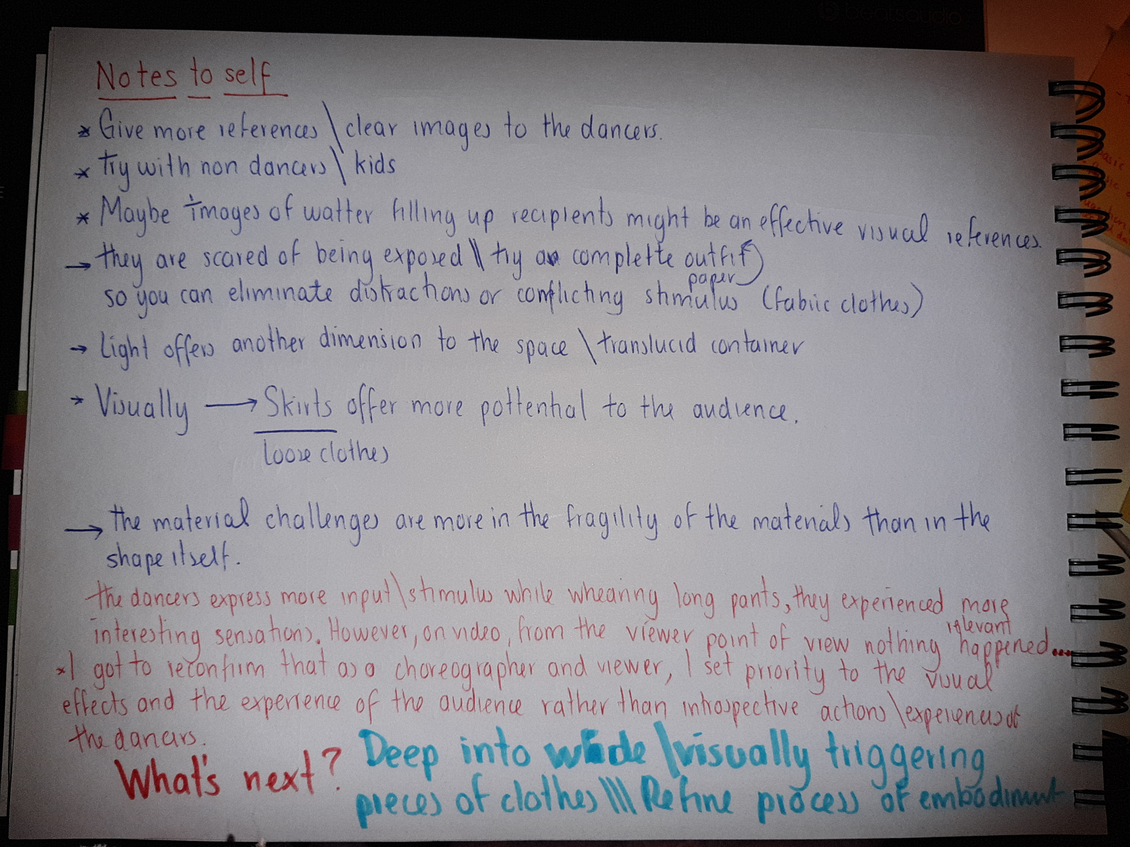 Notes to self
* Give more references \ clear images to the dancers.
* Try with non dancers \ kids
* Maybe images of watter filling up recipients might be an effective visual references.
→ they are scared of being exposed \\ try a complette outfit
paper
so you can eliminate distractions or conflicting stimulus (fabric clothes)
→ Light offers another dimension to the space \ translucid container
→ Visually → Skirts offer more pottential to the audience.
loose clothes
→ the material challenges are more in the fragility of the materials than in the
shape itself.
the dancers express more input \ stimulus while whearing long pants, they experienced more
interesting sensations. However, on video, from the viewer point of view nothing relevant happened...
* I got to reconfirm that as a choreographer and viewer, I set priority to the visual
effects and the experience of the audience rather than introspective actions \ experiences of
the dancers.
What's next? Deep into wide \ visually triggering
pieces of clothes \\\ Refine process of embodiment